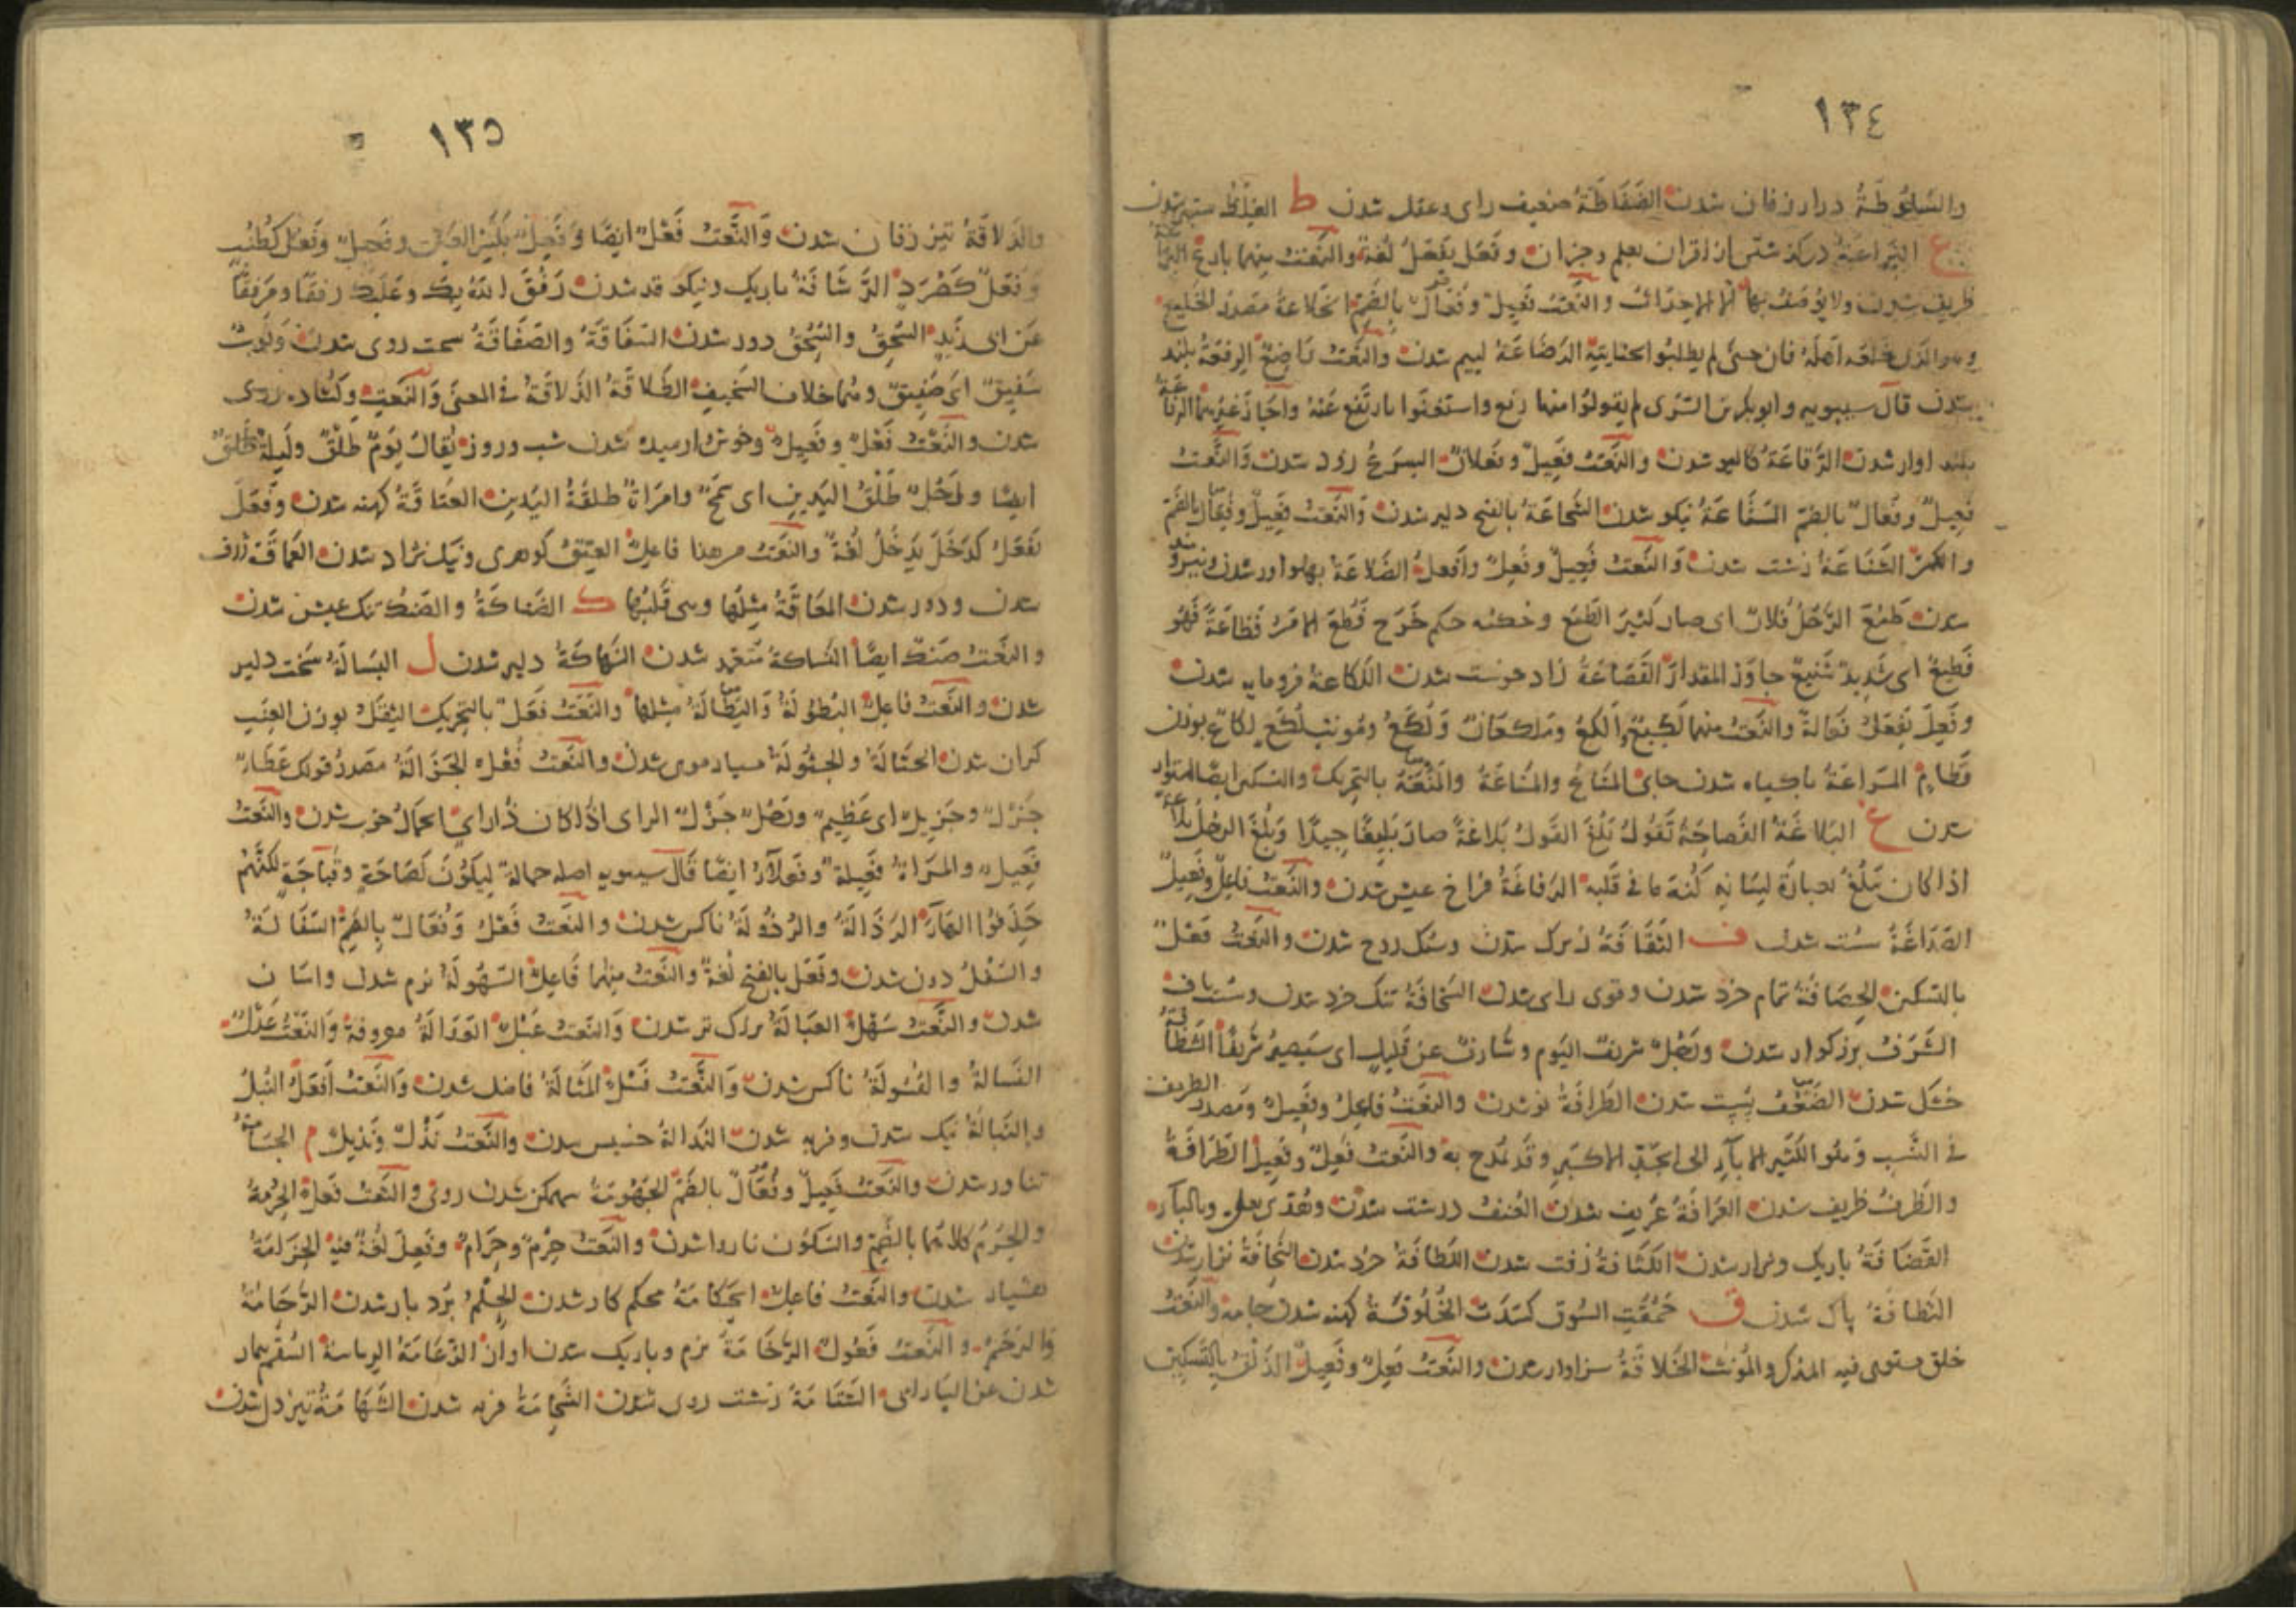 ١٣٤
والسلوطة دراز زفان شدن الضفاطة ضعيف رای وعقل شدن ط الغلظ ستبر شدن
ع البراعة درگذشتن از اقران بعلم وجزان وفعل يفعل لغة والنعت منهما بارع
ظريف شدن ولا يوصف بها الا الاحداث والنعت فعيل وفعال بالضم الخلاعة مصدر الخليع
وهو الذی خلعه اهله فان جنى لم يطلبوا بجنايته الرضاعة لييم شدن والنعت راضع الرفعة بلند
شدن قال سيبويه وابو بكر بن السری لم يقولوا منها رفع واستغنوا بارتفع عنه واجاز غيرهما الرفاعة
بلند اواز شدن الرقاعة كاليو شدن والنعت فعيل وفعلان السرع زود شدن والنعت
فعيل وفعال بالضم الشجاعة بالفتح دلير شدن والنعت فعيل وفعال بالضم
والكسر الشناعة زشت شدن والنعت فعيل وفعل وافعل الضلاعة بهلواور شدن ونيرو
شدن طمع الرجل فلان ای صار كثير الطمع وخكمه حكم خرج فظع الامر فظاعة فهو
فظيع ای شديد شنيع جاوز المقدار اللكاعة فرومايه شدن
وفعل يفعل والنعت منهما لكيع الكع وملكعان ولكع ومونث لكع لكاع بوزن
قطام المراعة باگياه شدن جای المناع والمناعة والمنعة بالتحريك والتسكين ايضا استوار
شدن غ البلاغة الفصاحة تقول بلغ القول بلاغة صار بليغا جيدا وبلغ الرجل بلاغة
اذا كان يبلغ بعبارة لسانه كنه ما فی قلبه الرفاغة فراخ عيش شدن والنعت فاعل وفعيل
الصداغة سست شدن ف الثقافة زيرک شدن وسبک روح شدن والنعت فعل
بالتسكين الحصافة تمام خرد شدن وقوی رای شدن السخافة تنک خرد شدن وسست باف
الشرف بزرگوار شدن ورجل شريف اليوم وشارف عن قليل ای سيصير شريفا
خشک شدن الضعف سست شدن الطرافة نو شدن والنعت فاعل وفعيل ومصدر الطريف
فی النسب وهو الكثير الاباء الى الجد الاكبر وقد يمدح به والنعت فعل وفعيل الظرافة
والظرف ظريف شدن العرافة عريف شدن العنف درشت شدن وتعدی بعلى وبالباء
القضافة باريک ونزار شدن الكثافة زفت شدن اللطافة خرد شدن النحافة نزار شدن
النظافة پاک شدن ق حمقت السوق كسدت الخلوقة كهنه شدن جامه والنعت
خلق يستوی فيه المذكر والمونث الخلاقة سزاوار شدن والنعت فعل وفعيل الذلق بالتسكين
١٣٥
والذلاقة تيز زفان شدن والنعت فعل ايضا وفعيل وفعل كطنب
وفعل كصرد الرشاقة باريک ونيكو قد شدن رفق الله بك وعليك رفقا ومرفقا
عن ابی زيد السحق والسحق دور شدن السفاقة والصفاقة سخت روی شدن وثوب
سفيق ای صفيق وهما خلاف السخيف الطلاقة الذلاقة فی المعنى والنعت وگشاده روی
شدن والنعت فعل وفعيل وخوش ارميده شدن شب وروز يقال يوم طلق وليلة طلق
ايضا ورجل طلق اليدين ای سمح وامراة طلقة اليدين العتاقة كهنه شدن وفعل
يفعل كدخل يدخل لغة والنعت من هذا فاعل العتق گوهری ونيک نژاد شدن العماقة ژرف
شدن ودور شدن المعاقة مثلها وهی قلبها ک الضناكة والضنک تنک عيش شدن
والنعت ضنک ايضا النساكة متعبد شدن النهاكة دلير شدن ل البسالة سخت دلير
شدن والنعت فاعل البطولة والبطالة مثلها والنعت فعل بالتحريک الثقل بوزن العنب
گران شدن الجثالة والجثولة بسيار موی شدن والنعت فعل الجزالة مصدر قولک عطاء
جزل وجزيل ای عظيم ورجل جزل الرای اذا كان ذا رای الجمال خوب شدن والنعت
فعيل والمراة فعيلة وفعلاء ايضا قال سيبويه اصله جمالة ليكون كصباحة وقباحة لكنهم
حذفوا الهاء الرذالة والرذولة ناكس شدن والنعت فعل وفعال بالضم السفالة
والسفل دون شدن وفعل بالفتح لغة والنعت منهما فاعل السهولة نرم شدن واسان
شدن والنعت سهل العبالة بزرگ تر شدن والنعت عبل العدالة معروفة والنعت عدل
الفسالة والفسولة ناكس شدن والنعت فسل المثالة فاضل شدن والنعت افعل النبل
والنبالة نيک شدن وفربه شدن النذالة خسيس شدن والنعت نذل ونذيل م الجسامة
تناور شدن والنعت فعيل وفعال بالضم الجهومة سهمگن شدن روی والنعت فعل الحرمة
والحرم كلاهما بالضم والسكون ناروا شدن والنعت حرم وحرام وفعل لغة فيه الحزامة
هشيار شدن والنعت فاعل الحكامة محكم كار شدن الحلم بردبار شدن الرخامة
والنعت فعول الرخامة نرم وباريک شدن اواز الزعامة الرياسة السقم بيمار
شدن عن الشتامة زشت روی شدن الشحامة فربه شدن الشهامة تيز دل شدن